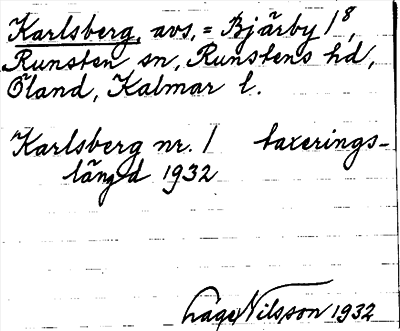 Karlsberg, avs, = Bjärby 1⁸,
Runsten sn, Runstens hd,
Öland, Kalmar l.
Karlsberg nr. 1 taxerings-
längd 1932
Lage Nilsson 1932